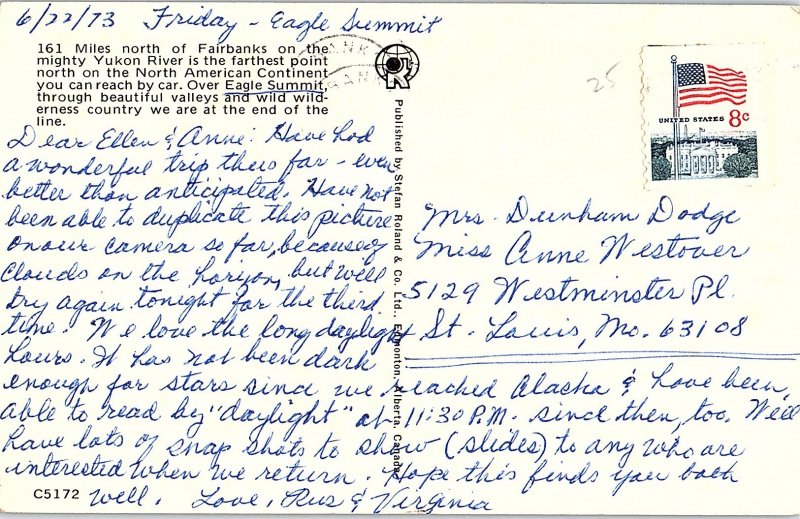 6/22/73 Friday - Eagle Summit
161 Miles north of Fairbanks on the
mighty Yukon River is the farthest point
north on the North American Continent
you can reach by car. Over Eagle Summit,
through beautiful valleys and wild wild-
erness country we are at the end of the
line.
Dear Ellen & Anne: Have had
a wonderful trip thus far - even
better than anticipated. Have not
been able to duplicate this picture
on our camera so far, because of
clouds on the horizon, but will
try again tonight for the third
time. We love the long daylight
hours. It has not been dark
enough for stars since we reached Alaska & have been
able to read by "daylight" at 11:30 P.M. since then, too. Will
have lots of snap shots to show (slides) to any who are
interested when we return. Hope this finds you both
well. Love, Rus & Virginia
C5172
Published by Stefan Roland & Co. Ltd., Edmonton, Alberta, Canada
R
25
UNITED STATES 8c
Mrs. Dunham Dodge
Miss Anne Westover
5129 Westminster Pl.
St. Louis, Mo. 63108